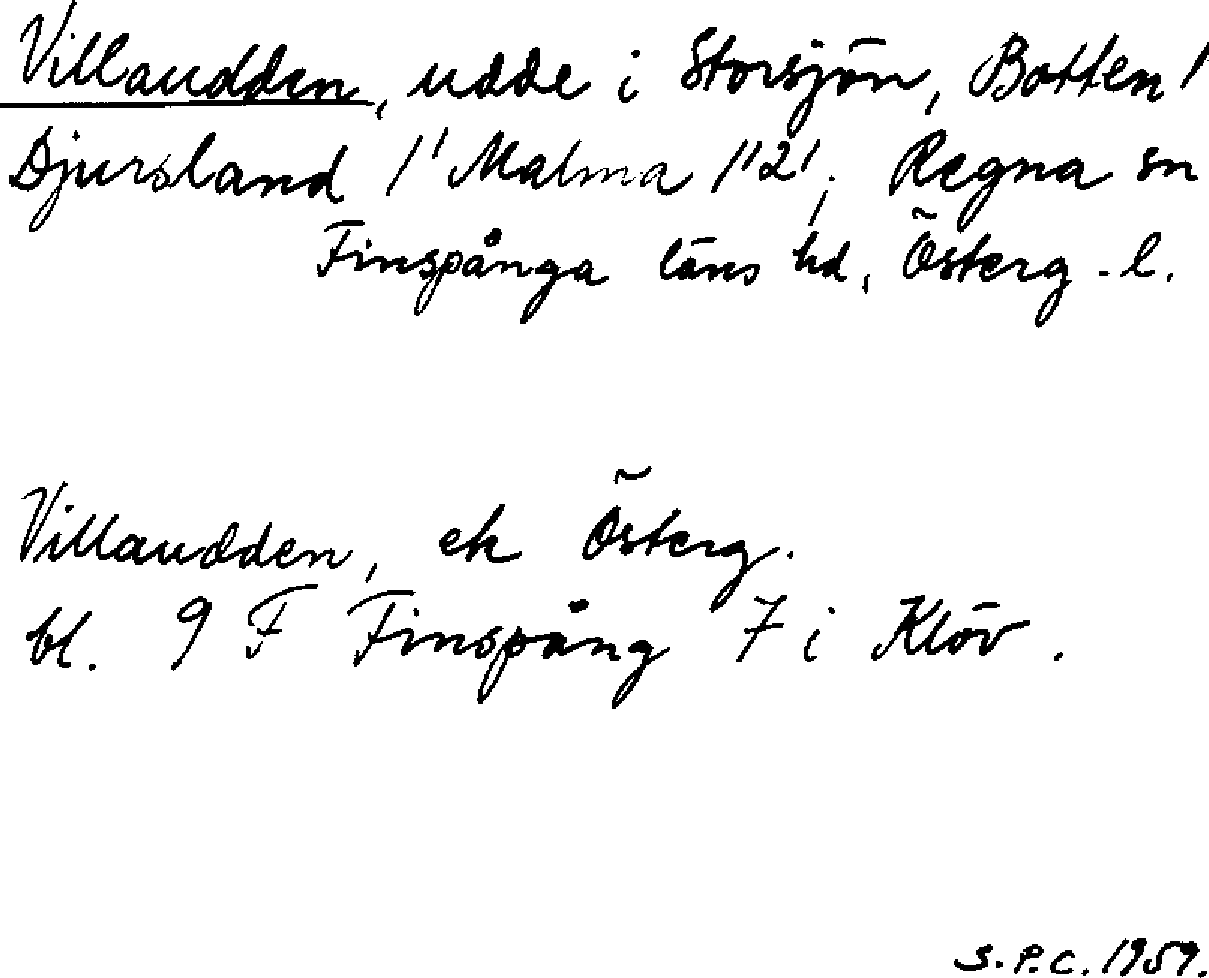 Villaudden, udde i Storsjön, Botten 1
Djursland 1¹ Malma 1"2¹, Regna sn
Finspånga läns hd, Österg-l.
Villaudden, ek Österg.
bl. 9 F Finspång 7 i Klöv.
S.P.C. 1959.